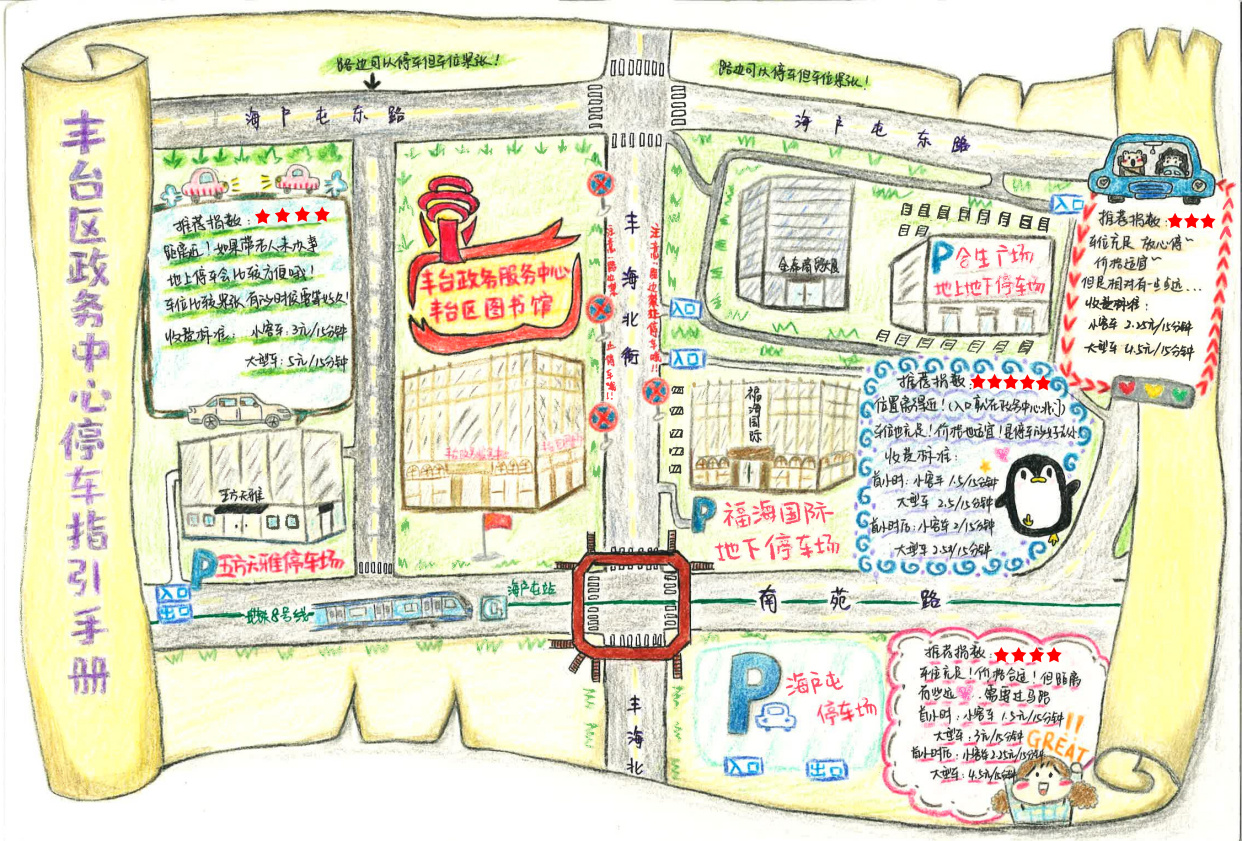 丰台区政务中心停车指引手册
路边可以停车但车位紧张!
路边可以停车但车位紧张!
海户屯东路
海户屯东路
推荐指数:★★★★
距离近!如果带老人来办事
地上停车会比较方便哦!
车位比较紧张 有的时候需等好久!
收费标准: 小客车:3元/15分钟
大型车:5元/15分钟
五方天雅
P五方天雅停车场
入口
出口
地铁8号线
海户屯站
丰台政务服务中心
丰台区图书馆
丰台政务服务中心
丰海北街
入口
入口
金泰商贸大厦
P合生广场
地上地下停车场
入口
推荐指数:★★★
车位充足 放心停~
价格适宜~
但是相对有一点远...
收费标准:
小客车 2.25元/15分钟
大型车 4.5元/15分钟
福海国际
P福海国际
地下停车场
推荐指数:★★★★★
位置离得近!(入口就在政务中心北门)
车位也充足!价格也适宜!是停车的好去处
收费标准:
首小时:小客车 1.5/15分钟
大型车 2.5/15分钟
首小时后:小客车 2/15分钟
南苑路
P海户屯
停车场
入口
出口
推荐指数:★★★★
车位充足!价格合适!但距离
有些远..需要过马路
首小时:小客车 1.5元/15分钟
大型车:3元/15分钟
首小时后:小客车 2.25元/15分钟
大型车:4.5元/15分钟
!!
GREAT
丰海北